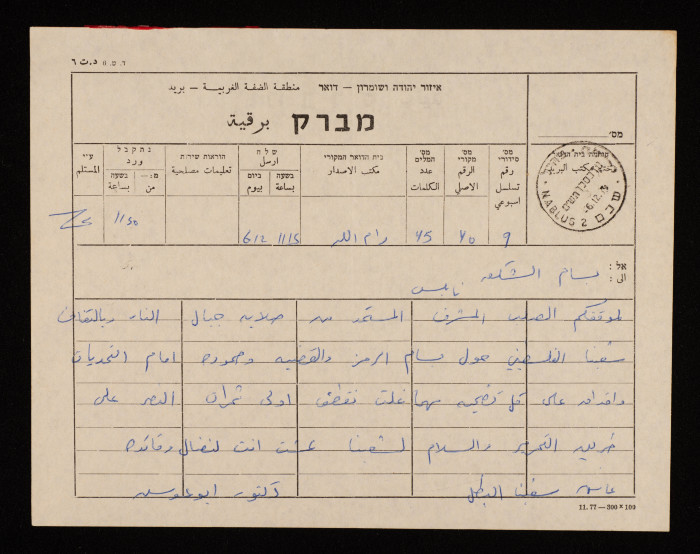 ד. ט. 11 د.ت ٦
איזור יהודה ושומרון — דואר منطقة الضفة الغربية — بريد
מברק برقية
מס'
מס' סידורי رقم تسلسل اسبوعي
מס' מקורי الرقم الاصلي
מס' המלים عدد الكلمات
בית הדואר המקורי مكتب الاصدار
שלח ارسل
בשעה بساعة
ביום بيوم
הוראות שירות تعليمات مصلحية
נתקבל ورد
בשעה بساعة
מ:— من
ע"י المستلم
NABLUS 2 שכם
-6.12.79
9 40 45 رام الله 1115 6/12 1150
אל : الى :
بسام الشكعه
نابلس
لموقفكم الصلب المشرف المستمد من صلابه جبال النار وبالتفاف
شعبنا الفلسطيني حول بسام الرمز والقضيه وصموده امام التحديات
واقدامه على كل تضحيه مهما غلت نقطف اولى ثمرات النصر على
طريق التحرير والسلام لشعبنا عشت انت لنضال وقائده
عاش شعبنا البطل
دكتور ابو
11. 77 — 300 × 100